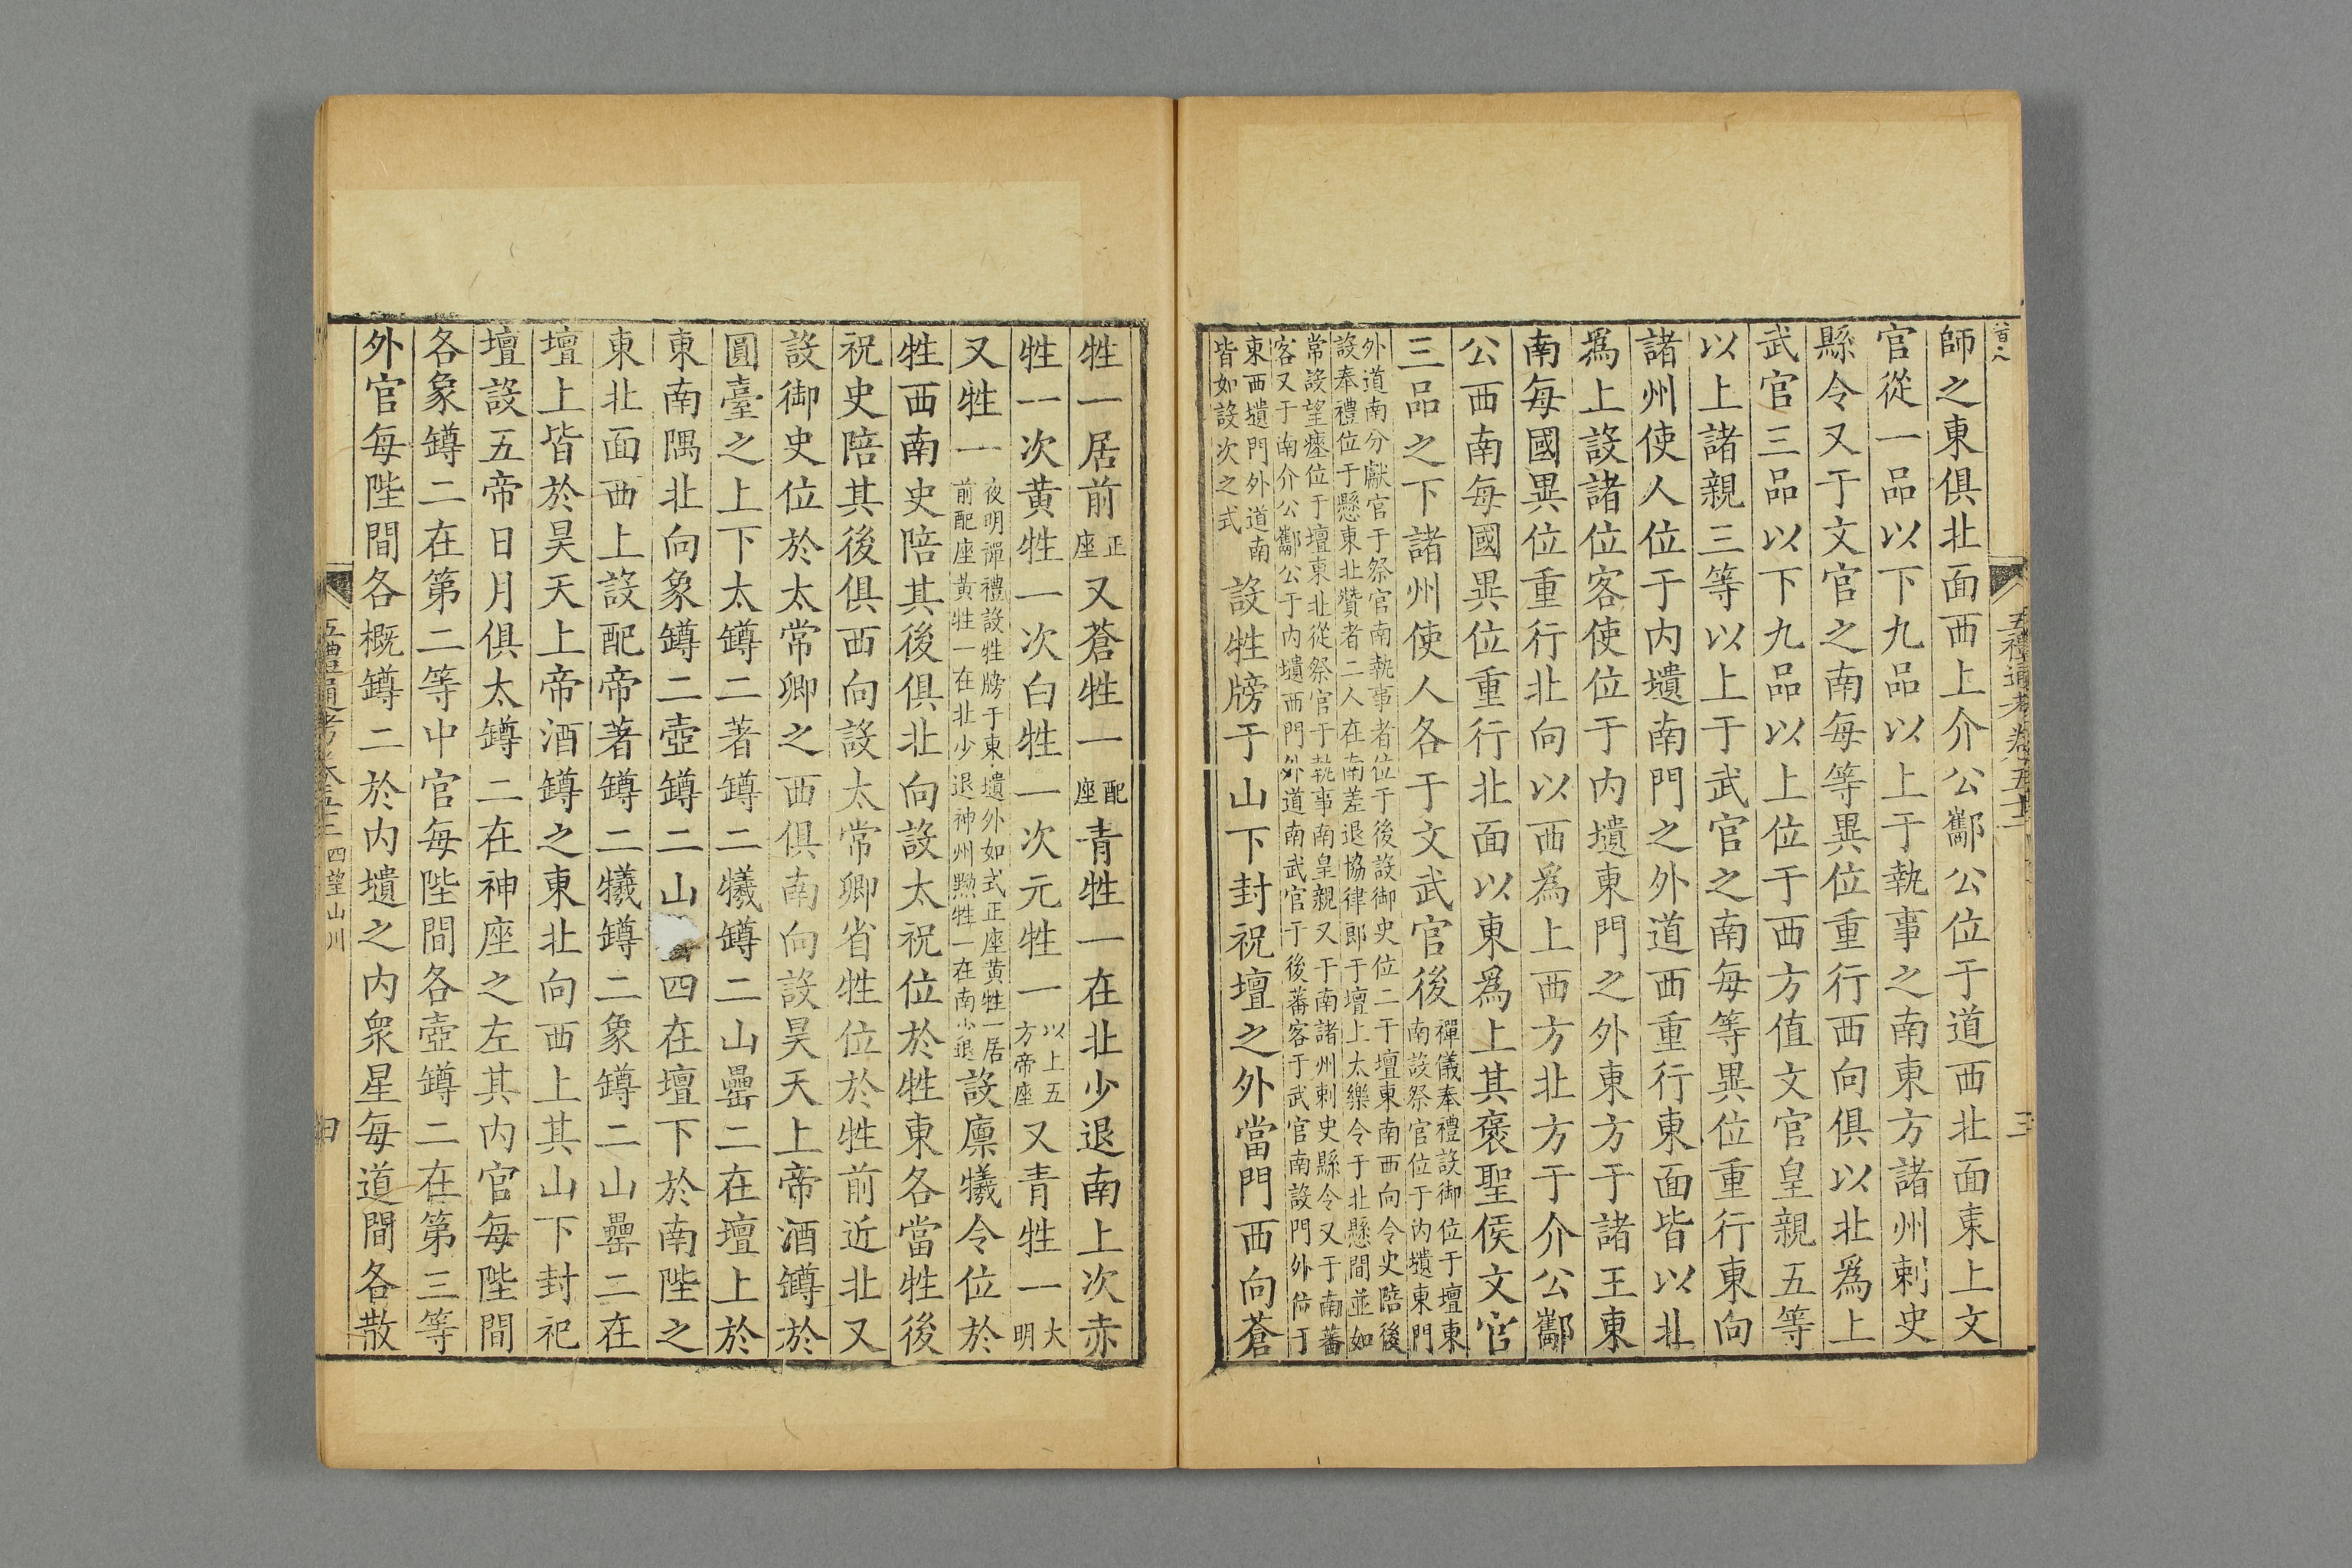 師之東俱北面西上介公酅公位于道西北面東上文
官從一品以下九品以上于執事之南東方諸州刺史
縣令又于文官之南每等異位重行西向俱以北爲上
武官三品以下九品以上位于西方值文官皇親五等
以上諸親三等以上于武官之南每等異位重行東向
諸州使人位于内壝南門之外道西重行東面皆以北
爲上設諸位客使位于内壝東門之外東方于諸王東
南每國異位重行北向以西爲上西方北方于介公酅
公西南每國異位重行北面以東爲上其褒聖侯文官
三品之下諸州使人各于文武官後禪儀奉禮設御位于壇東
南設祭官位于内壝東門
外道南分獻官于祭官南執事者位于後設御史位二于壇東南西向令史陪後
設奉禮位于懸東北贊者二人在南差退協律郎于壇上太樂令于北懸間並如
常設望瘞位于壇東北從祭官于執事南皇親又于南諸州刺史縣令又于南蕃
客又于南介公酅公于内壝西門外道南武官于後蕃客于武官南設門外位于
東西壝門外道南
皆如設次之式設牲牓于山下封祝壇之外當門西向蒼
五禮通考卷五十二
三
牲一居前正座又蒼牲一配座青牲一在北少退南上次赤
牲一次黄牲一次白牲一次元牲一以上五方帝座又青牲一大明
又牲一夜明禪禮設牲牓于東壝外如式正座黄牲一居
前配座黄牲一在北少退神州黝牲一在南少退設廪犧令位於
牲西南史陪其後俱北向設太祝位於牲東各當牲後
祝史陪其後俱西向設太常卿省牲位於牲前近北又
設御史位於太常卿之西俱南向設昊天上帝酒罇於
圓臺之上下太罇二著罇二犧罇二山罍二在壇上於
東南隅北向象罇二壺罇二山四在壇下於南陛之
東北面西上設配帝著罇二犧罇二象罇二山罍二在
壇上皆於昊天上帝酒罇之東北向西上其山下封祀
壇設五帝日月俱太罇二在神座之左其内官每陛間
各象罇二在第二等中官每陛間各壺罇二在第三等
外官每陛間各概罇二於内壝之内衆星每道間各散
四望山川
四